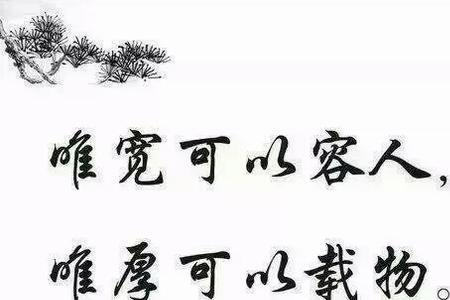 唯宽可以容人，
唯厚可以载物。